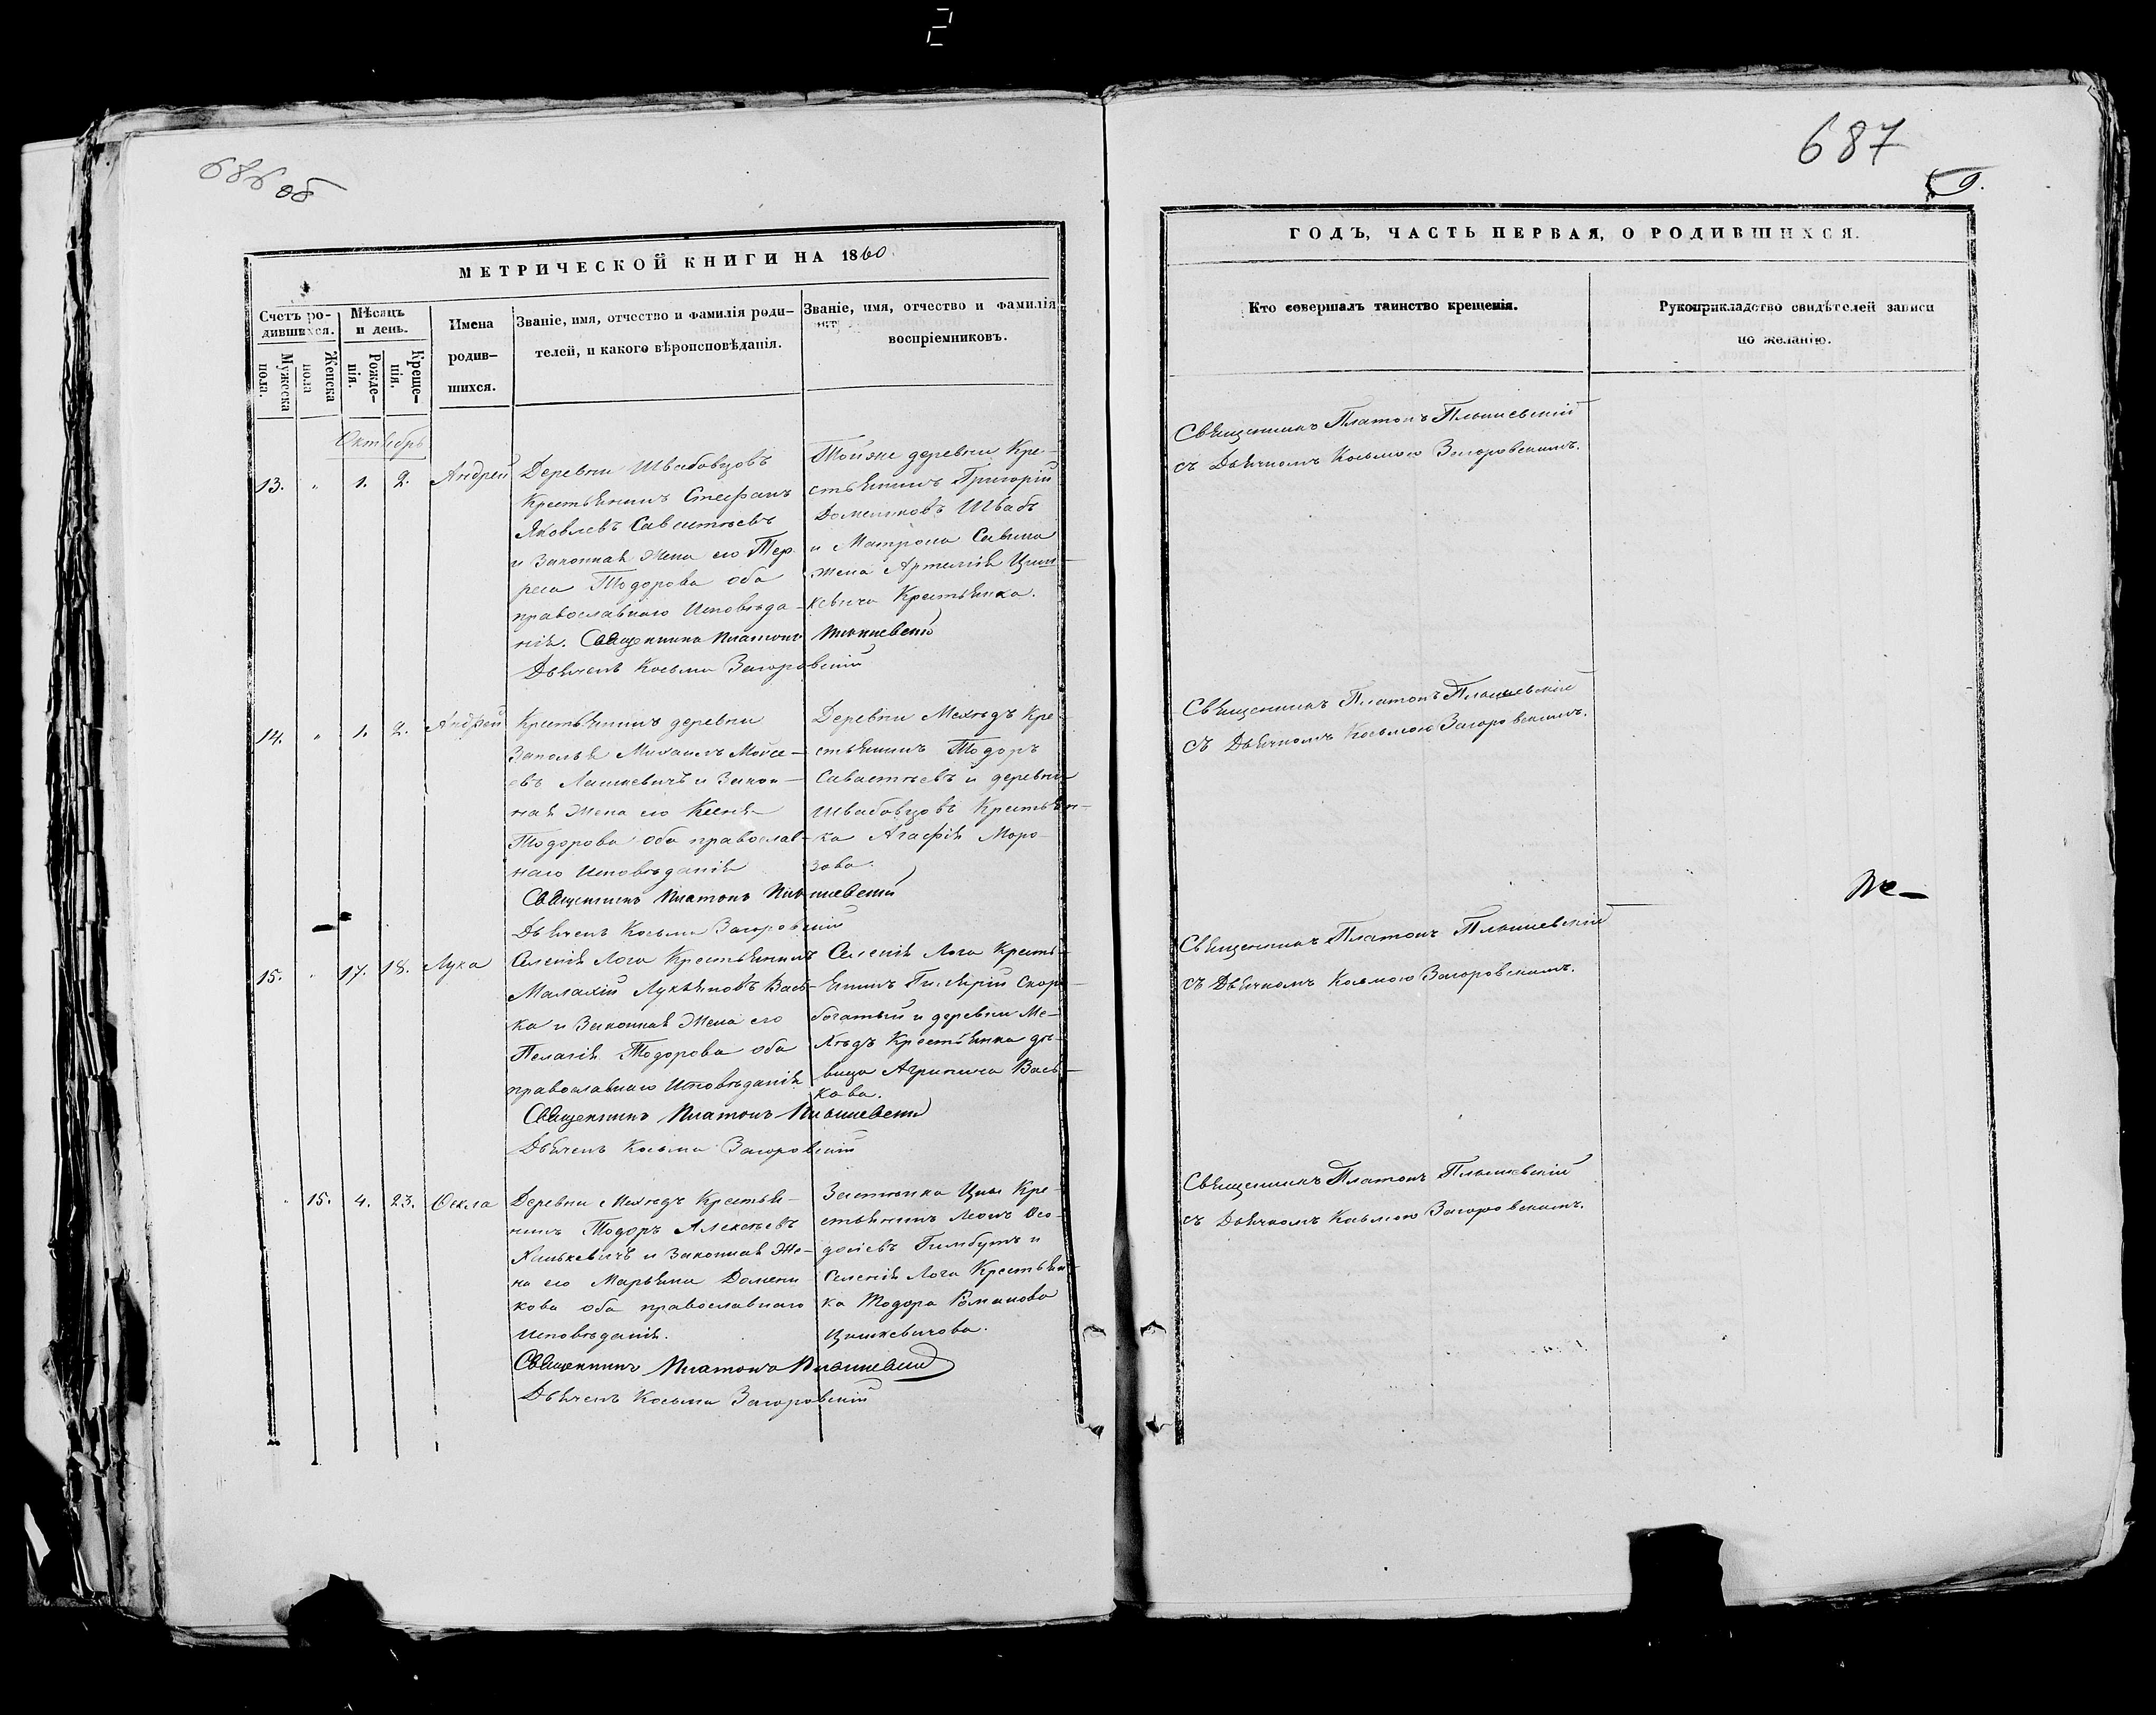 2
686 об
МЕТРИЧЕСКОЙ КНИГИ НА 1860
Счетъ ро-
дившихся.
Мужеска
пола.
Женска
пола
Мѣсяцъ
и день.
Рожде-
нія.
Креще-
нія.
Имена
родив-
шихся.
Званіе, имя, отчество и фамилія роди-
телей, и какого вѣроисповѣданія.
Званіе, имя, отчество и фамилія
воспріемниковъ.
Октябрь
13. „ 1. 2. Андрей
Деревни Швабовцовъ
Крестьянинъ Стефанъ
Яковлевъ Савастѣевъ
и Законная Жена его Тер
реса Тодорова оба
православнаго Исповѣда-
нія. Священникъ Платонъ
Дьячекъ Косьма Загоровскій
Тойже деревни Кре-
стьянинъ Григорій
Домениковъ Швабъ
и Матрона Савина
Жена Артемія
Крестьянка.
14. „ 1. 2. Андрей
Крестьянинъ деревни
Заполья Михаилъ Мойсе-
евъ Лашкевичъ и Закон-
ная Жена его Ксенія
Тодорова оба православ-
наго Исповѣданія
Священникъ Платонъ
Дьячекъ Косьма Загоровскій
Кре-
стьянинъ Тодоръ
Савастѣевъ и деревни
Швабовцовъ Крестьян-
ка Агафія Моро-
зова.
15. „ 17. 18. Лука
Селенія Лога Крестьянинъ
Малахій Лукьяновъ Вась-
ка и Законная Жена его
Пелагія Тодорова оба
православнаго Исповѣданія
Священникъ Платонъ
Дьячекъ Косьма Загоровскій
Селенія Лога Кресть-
янинъ Григорій Скоро-
богатый и деревни
Крестьянка дѣ-
вица Агрипина Вась-
кова.
„ 15. 4. 23. Ѳекла
Деревни Крестья-
нинъ Тодоръ Алексѣевъ
Ханькевичъ и Законная Же-
на его Марьяна Домени
кова оба православнаго
Исповѣданія.
Священникъ Платонъ
Дьячекъ Косьма Загоровскій
Застѣнка Кре-
стьянинъ Леонъ Ѳео-
досіевъ Гимбутъ и
Селенія Лога Крестьян-
ка Тодора Романова
Цишкевичова.
687
9.
ГОДЪ, ЧАСТЬ ПЕРВАЯ, О РОДИВШИХСЯ.
Кто совершалъ таинство крещенія.
Рукоприкладство свидѣтелей записи
по желанію.
Священникъ Платонъ
съ Дьячкомъ Косьмою Загоровскимъ.
Священникъ Платонъ
съ Дьячкомъ Косьмою Загоровскимъ.
Священникъ Платонъ
съ Дьячкомъ Косьмою Загоровскимъ.
Священникъ Платонъ
съ Дьячкомъ Косьмою Загоровскимъ.